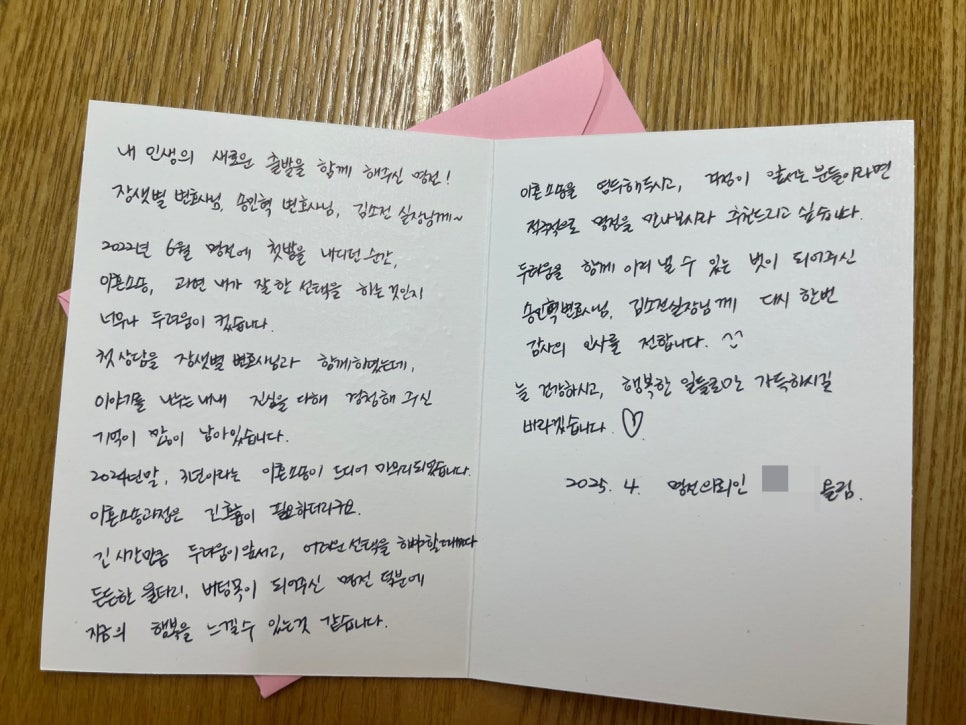 내 인생의 새로운 출발을 함께 해주신 명전!
장샛별 변호사님, 송인혁 변호사님, 김소전 실장님께~
2022년 6월 명전에 첫발을 내디던 순간,
이혼소송, 과연 내가 잘 한 선택을 하는것인지
너무나 두려움이 컸습니다.
첫 상담을 장샛별 변호사님과 함께하였는데,
이야기를 나누는내내 진심을 다해 경청해 주신
기억이 많이 남아있습니다.
2024년말, 3년이라는 이혼소송이 드디어 마무리되었습니다.
이혼소송과정은 긴호흡이 필요하더라구요.
긴 시간만큼 두려움이 앞서고, 어려운 선택을 해야할때마다
든든한 울타리, 버팀목이 되어주신 명전 덕분에
지금의 행복을 느낄수 있는것 같습니다.
이혼소송을 염두해두시고, 걱정이 앞서는 분들이라면
적극적으로 명전을 만나보시라 추천드리고 싶습니다.
두려움을 함께 이겨 낼 수 있는 벗이 되어주신
송인혁변호사님, 김소전실장님께 다시 한번
감사의 인사를 전합니다. ^^
늘 건강하시고, 행복한 일들로만 가득하시길
바라겠습니다. ♡.
2025. 4. 명전의뢰인 올림.